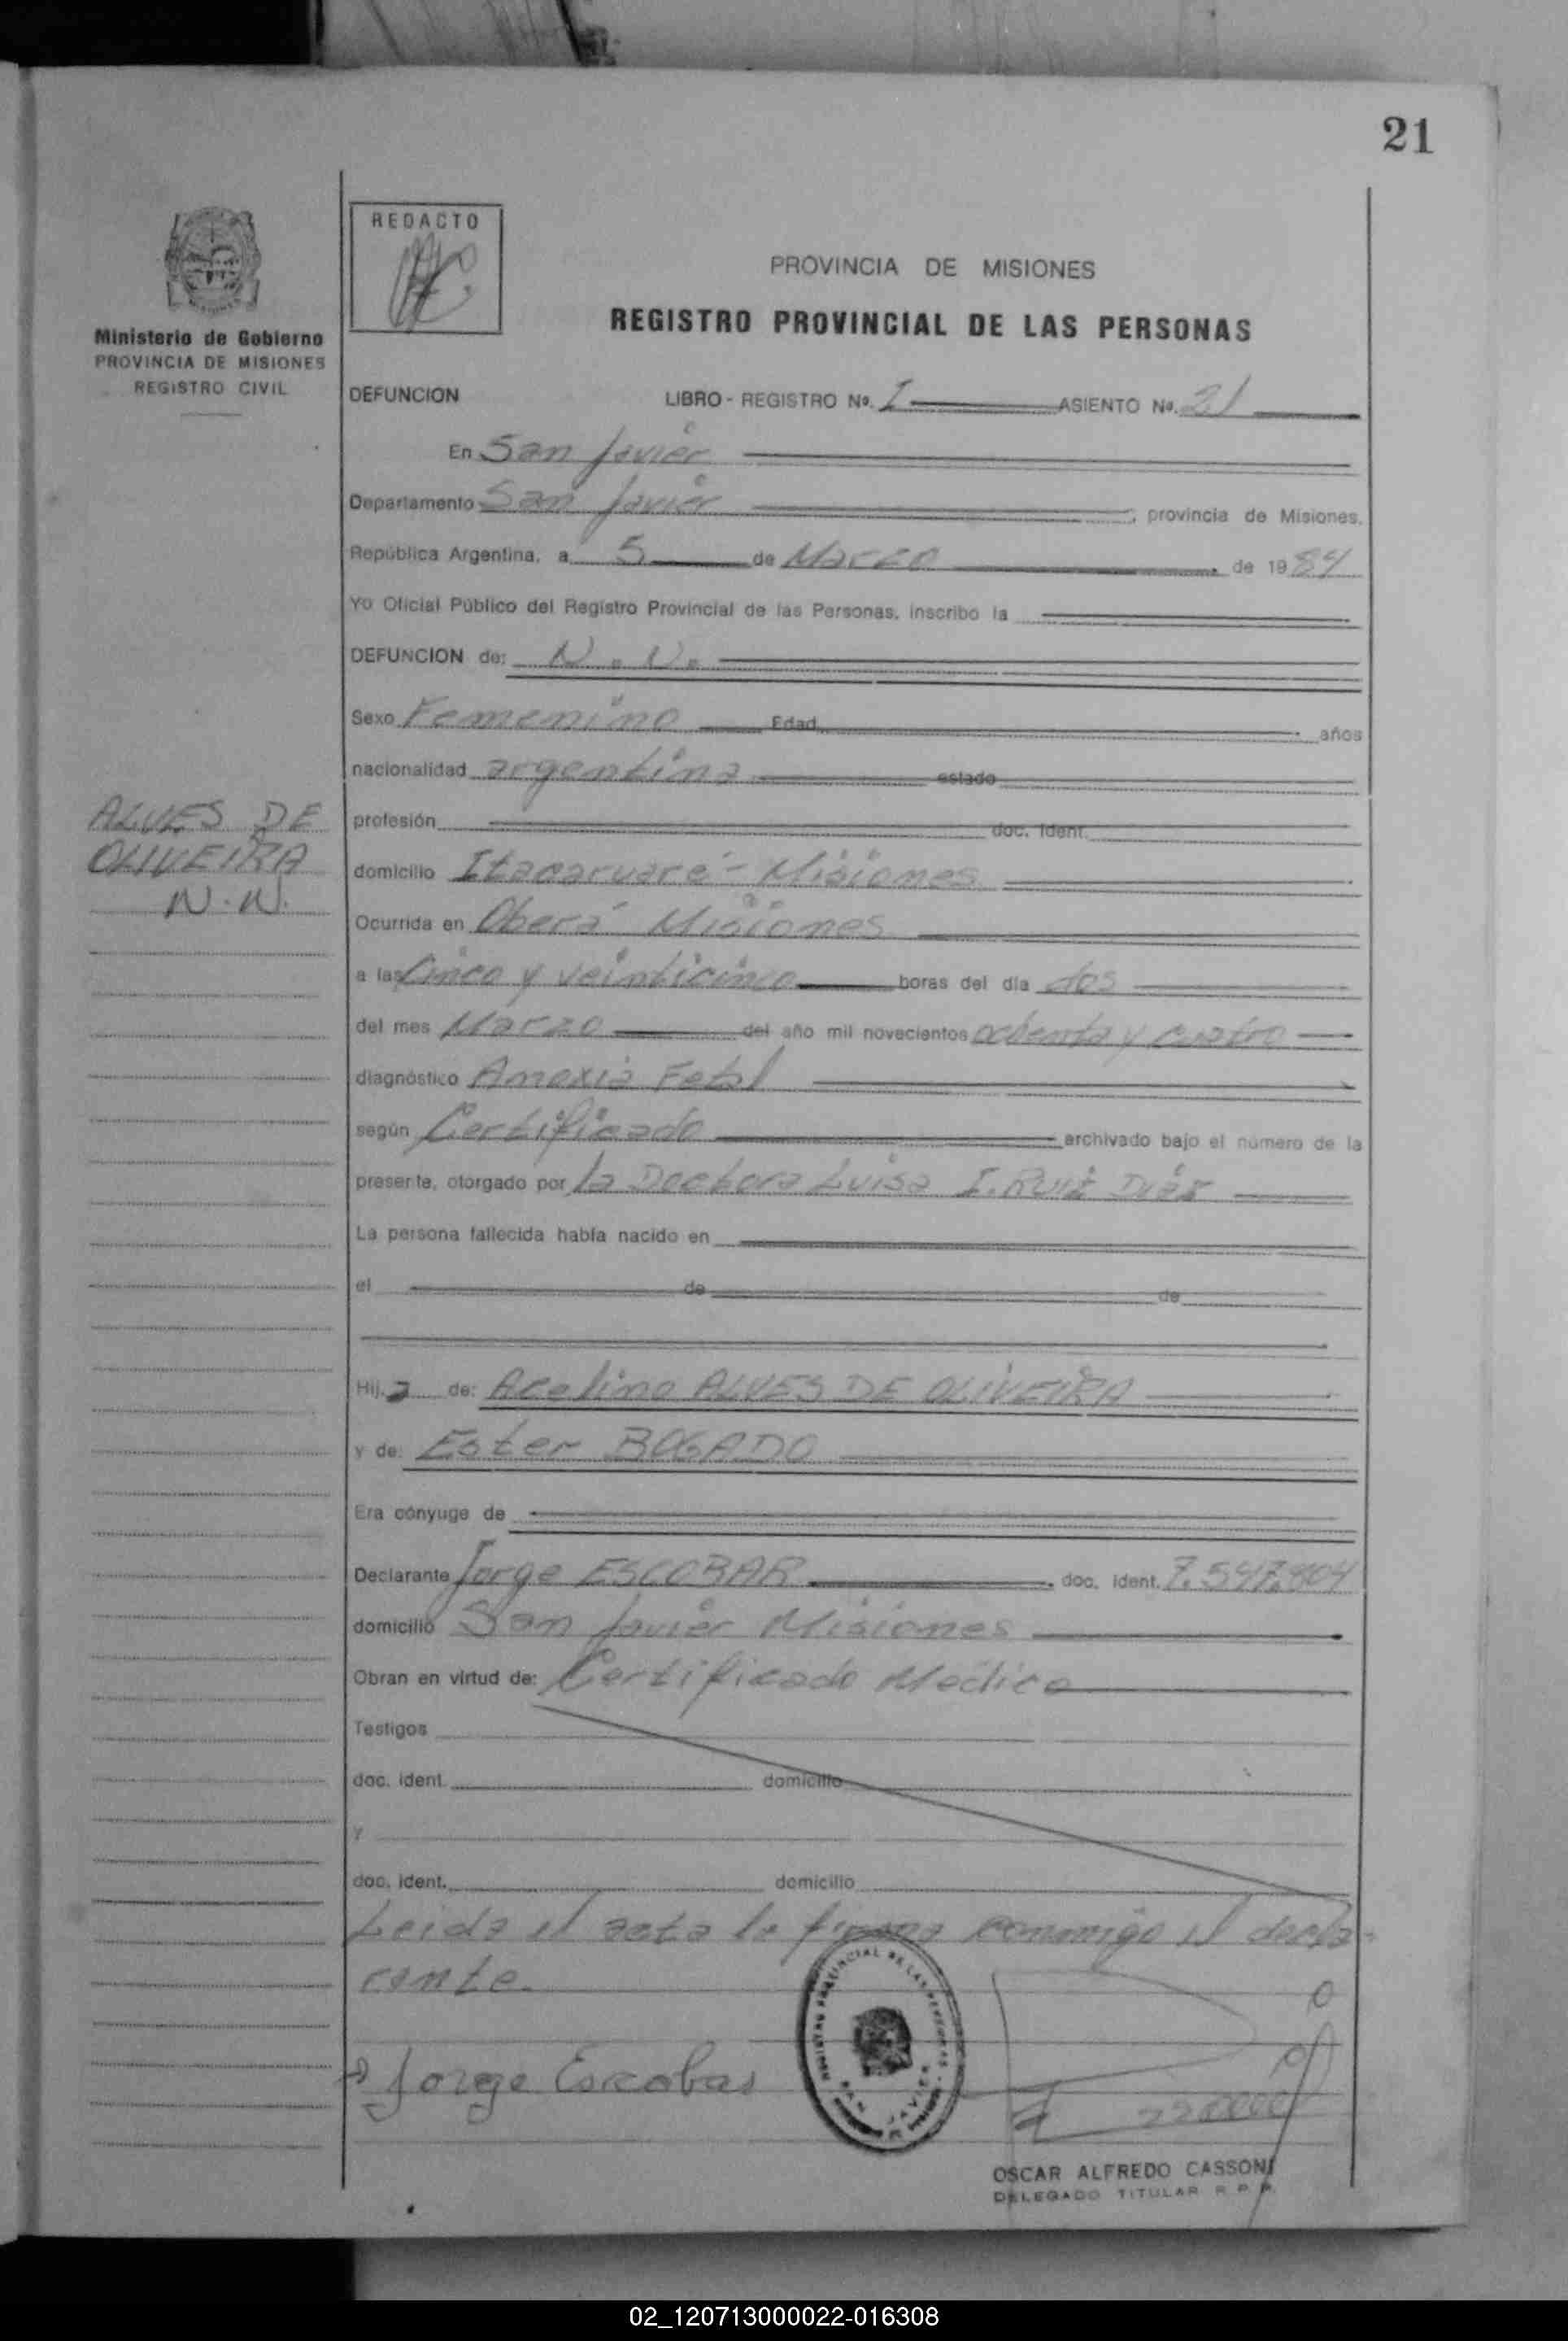 21
REDACTO
PROVINCIA DE MISIONES
REGISTRO PROVINCIAL DE LAS PERSONAS
Ministerio de Gobierno
PROVINCIA DE MISIONES
REGISTRO CIVIL
DEFUNCION LIBRO - REGISTRO Nº. I ASIENTO Nº. 21
En San Javier
Departamento San Javier, provincia de Misiones,
República Argentina, a 5 de Marzo de 1984
Yo Oficial Público del Registro Provincial de las Personas, inscribo la
DEFUNCION de: N. N.
Sexo Femenino Edad años
nacionalidad argentina estado
ALVES DE
OLIVEIRA
N. N.
profesión doc. ident.
domicilio Itacaruaré - Misiones
Ocurrida en Oberá Misiones
a las Cinco y veinticinco horas del día dos
del mes Marzo del año mil novecientos ochenta y cuatro
diagnóstico Anoxia Fetal
según Certificado archivado bajo el número de la
presente, otorgado por la Doctora Luisa I. Ruiz Diaz
La persona fallecida había nacido en
el de de
Hija de: Acelino ALVES DE OLIVEIRA
y de: Ester BOGADO
Era cónyuge de
Declarante Jorge ESCOBAR doc. ident. 7.547.804
domicilio San Javier Misiones
Obran en virtud de: Certificado Medico
Testigos
doc. ident. domicilio
y
doc. ident. domicilio
Leida el acta la firma conmigo el decla-
rante.
REGISTRO PROVINCIAL DE LAS PERSONAS
SAN JAVIER
Jorge Escobar
OSCAR ALFREDO CASSONI
DELEGADO TITULAR R. P. P.
02_120713000022-016308